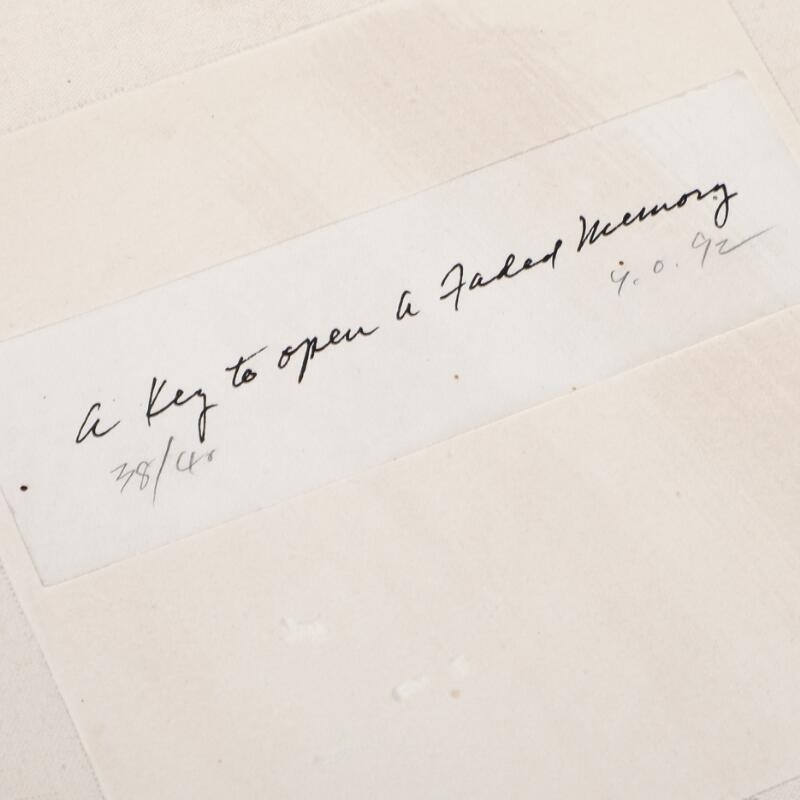 A Key to open A Faded Memory
38/40